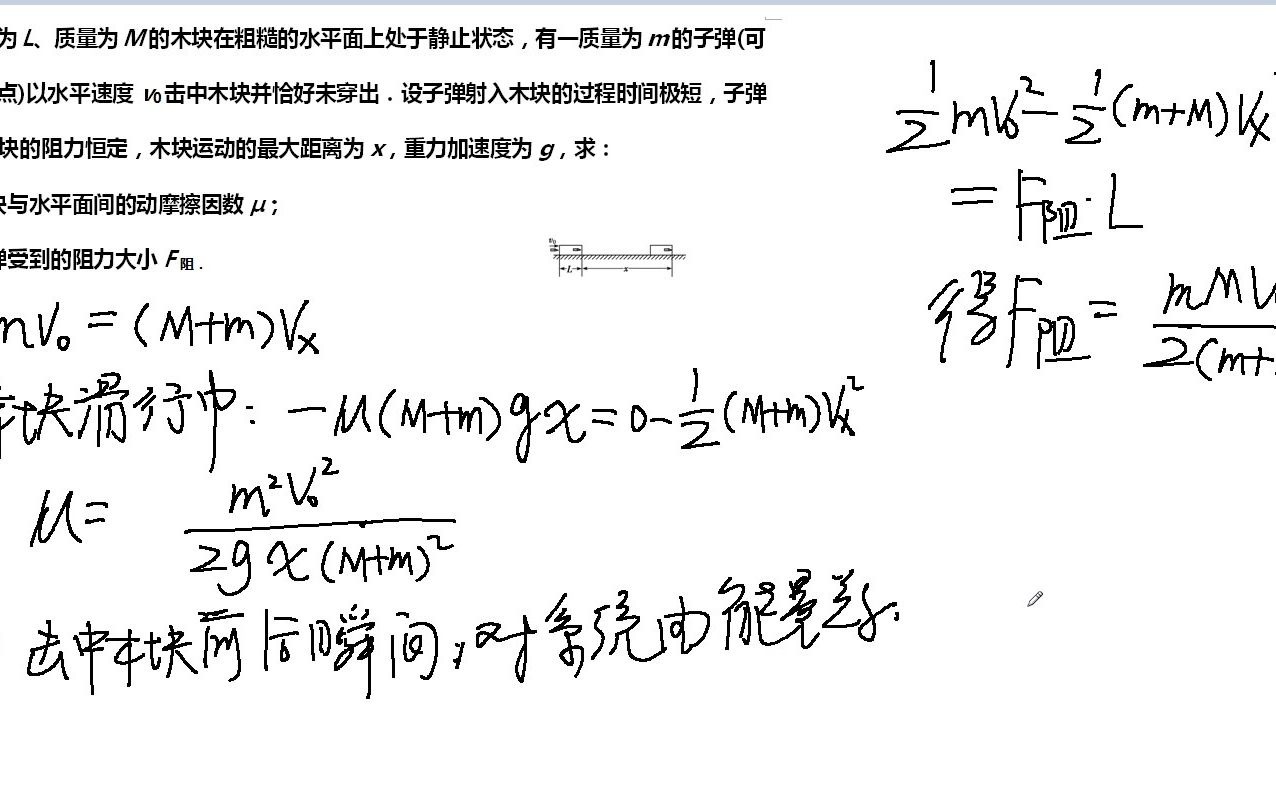 为 L、质量为 M的木块在粗糙的水平面上处于静止状态，有一质量为 m的子弹(可
点)以水平速度 v₀击中木块并恰好未穿出．设子弹射入木块的过程时间极短，子弹
块的阻力恒定，木块运动的最大距离为 x，重力加速度为 g，求：
块与水平面间的动摩擦因数 μ；
弹受到的阻力大小 F阻．
v₀
L
x
mV₀=(M+m)Vₓ
木块滑行中: -μ(M+m)gx=0-1/2(M+m)Vₓ²
μ= m²V₀²/2gx(M+m)²
击中木块前后瞬间,对系统由能量差分.
1/2mV₀²-1/2(m+M)Vₓ
=F阻·L
得F阻= mMV/2(m+